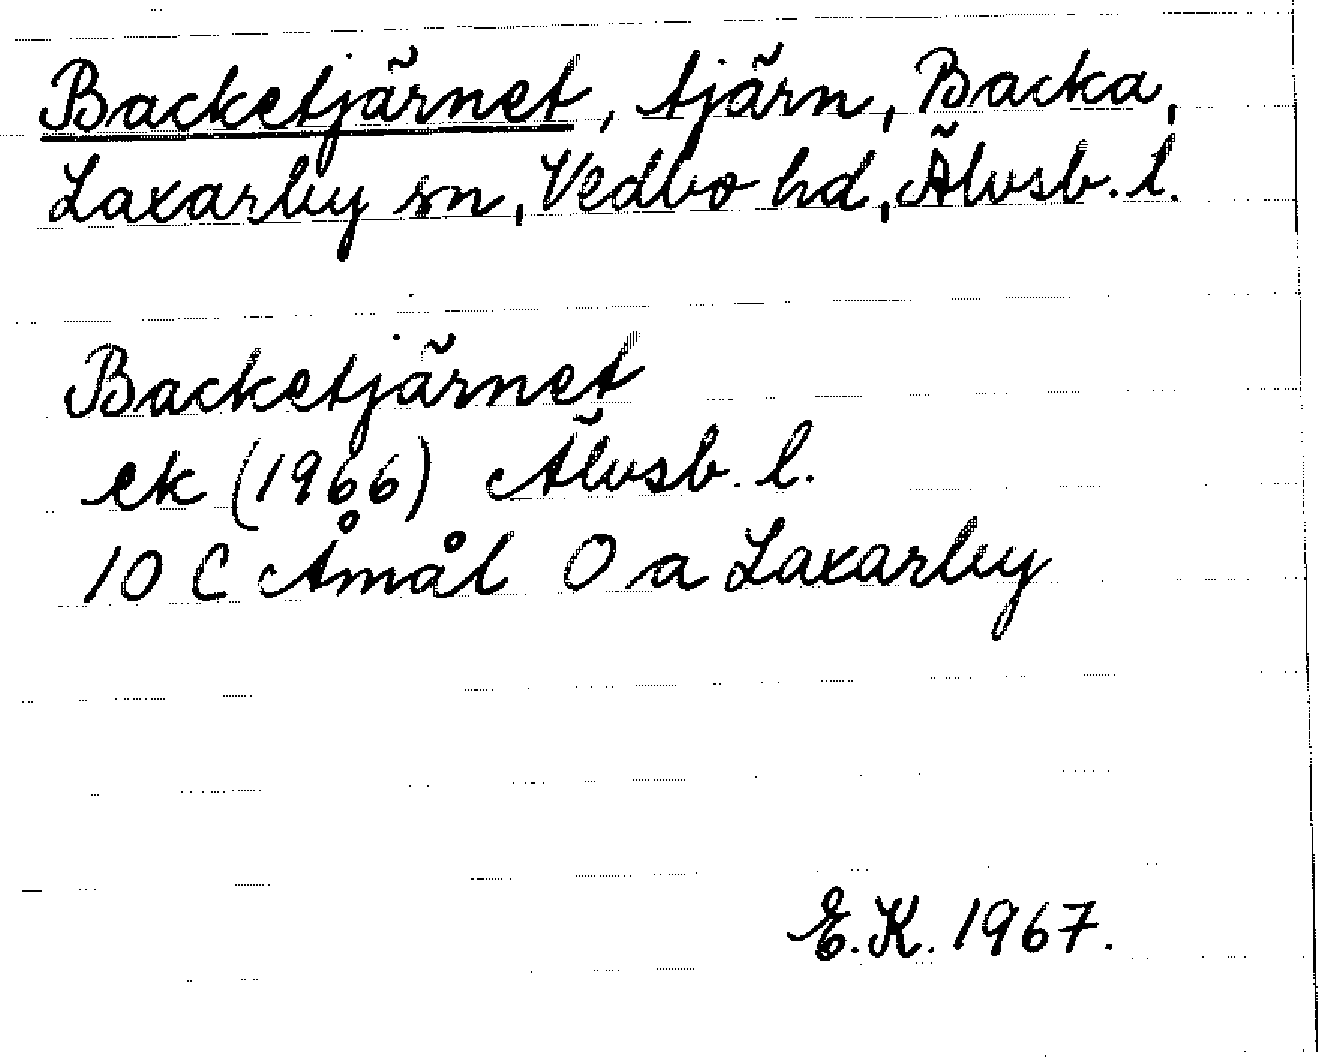 Backetjärnet, tjärn, Backa,
Laxarby sn, Vedbo hd, Älvsb. l.
Backetjärnet
ek (1966) Älvsb. l.
10 C Åmål O a Laxarby
E.K. 1967.